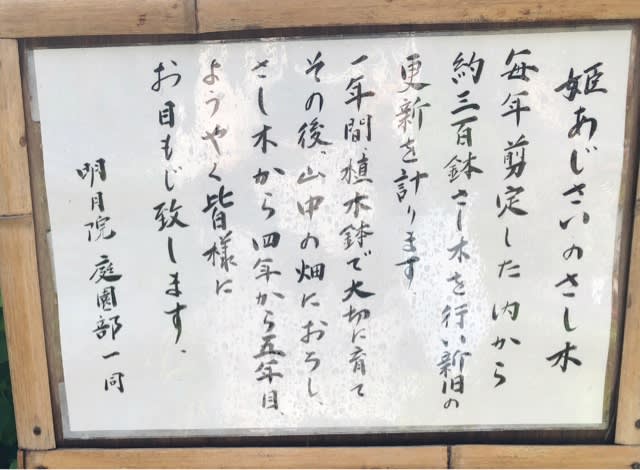 姫あじさいのさし木
毎年剪定した内から
約三百鉢さし木を行い新旧の
更新を計ります
一年間、植木鉢で大切に育て
その後、山中の畑におろし、
さし木から四年から五年目、
ようやく皆様に
お目もじ致します。
明月院 庭園部一同